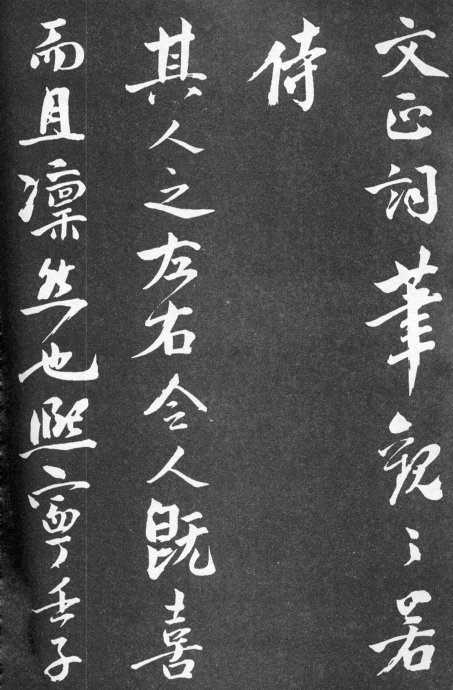 文正詞筆觀之若
侍
其人之左右令人既喜
而且凜然也熙寧壬子